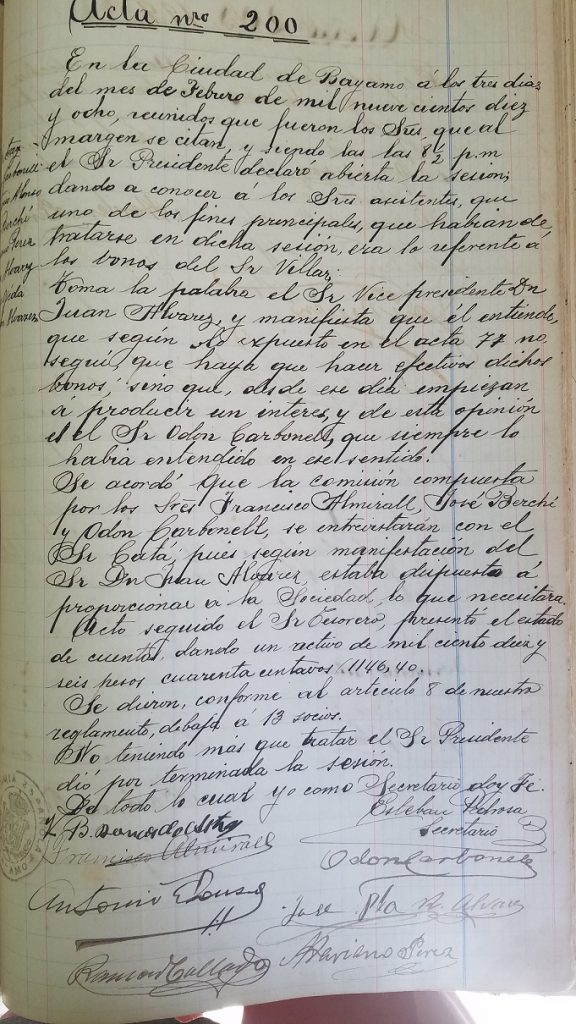 Acta nro 200
En la Ciudad de Bayamo á los tres dias
del mes de Febrero de mil nueve cientos diez
y ocho, reunidos que fueron los Sres, que al
margen se citan, y siendo las las 8½ p.m
el Sr Presidente declaró abierta la sesion;
dando a conocer á los Sres asistentes, que
uno de los fines principales, que habian de
tratarse en dicha sesion, era lo referente a
los bonos del Sr Villar;
Carbonell
Alonso
Berché
Perez
Alvarez
Ojeda
Alvarez
Toma la palabra el Sr Vice presidente Dn
Juan Alvarez, y manifiesta que él entiende,
que según lo expuesto en el acta 77 no
seguió, que haya que hacer efectivos dichos
bonos, sinó que, desde ese dia empiezan
á producir un interes, y de esta opinión
es el Sr Odon Carbonell, que siempre lo
habia entendido en ese sentido.
Se acordó que la comisión compuesta
por los Srēs Francisco Almirall, José Berché
y Odon Carbonell, se entrevistarán con el
Sr Catá, pues según manifestación del
Sr Dn Juan Alvarez, estaba dispuesto á
proporcionar á la Sociedad, lo que necesitara.
Acto seguido el Sr Tesorero, presentó el estado
de cuentas, dando un activo de mil ciento diez y
seis pesos cuarenta centavos 1146,40.
Se dieron, conforme al articulo 8 de nuestro
reglamento, de baja á 13 socios.
No teniendo más que tratar el Sr Presidente
dió por terminada la sesion.
De todo lo cual yo como Secretario doy Fé.
Esteban Pedrosa
Secretario
Francisco Almirall
Odon Carbonell
Antonio
José Pla
R. Alvarez
Ramon Collado
Mariano Perez